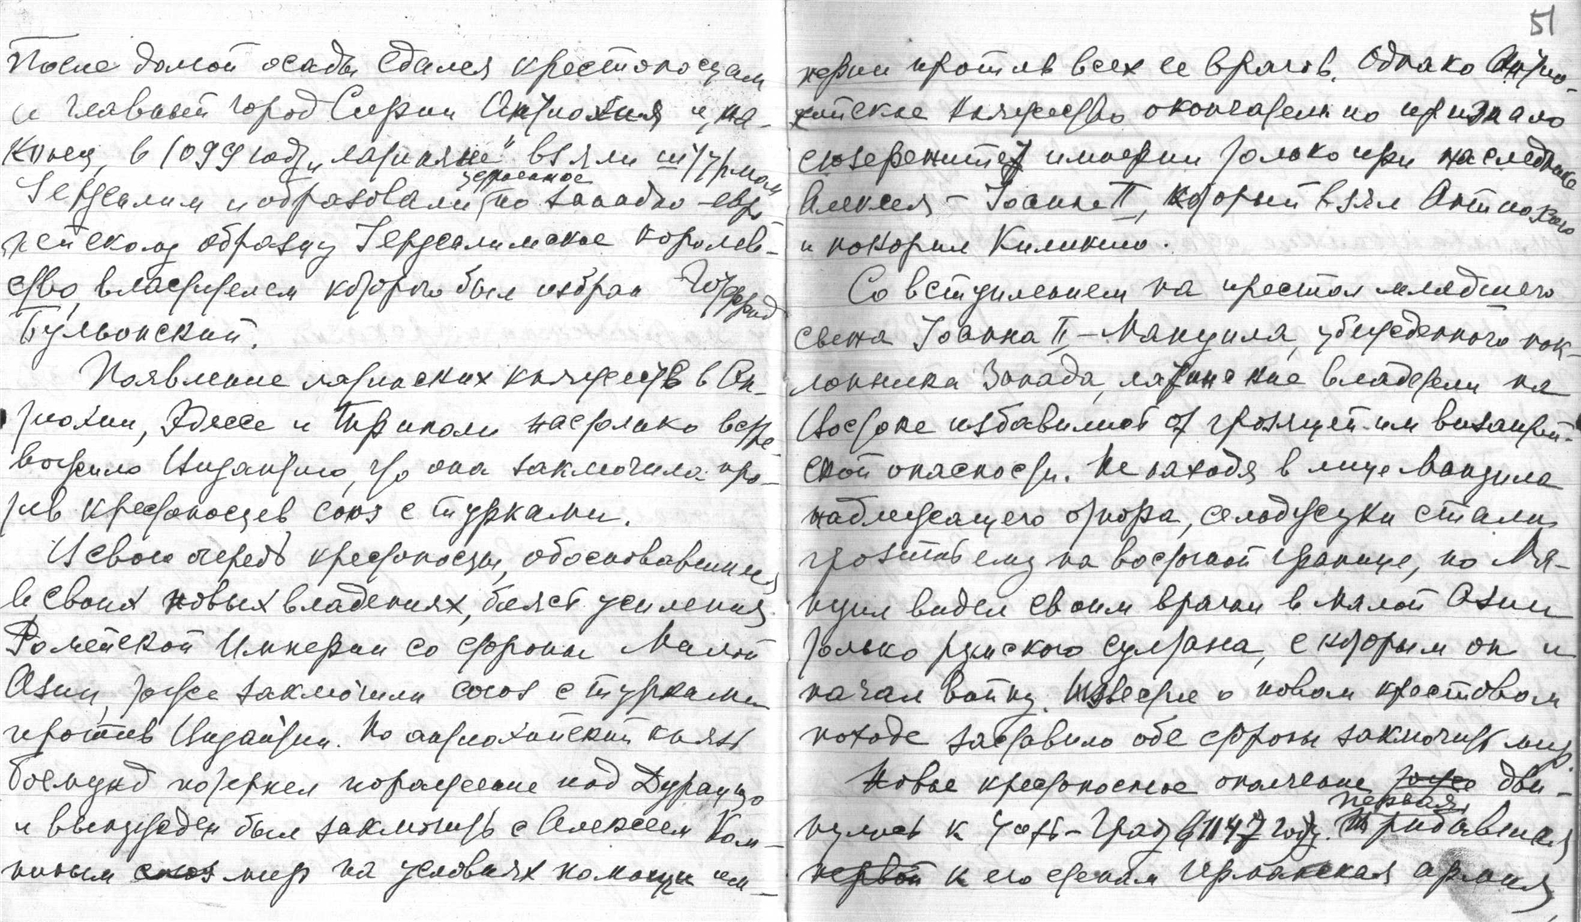 После долгой осады сдался крестоносцам
и главный город Сирии Антиохия и, на-
конец, в 1099 году „латиняне" взяли штурмом
Іерусалим и образовали устроенное по западно-евро-
пейскому образцу Іерусалимское королев-
ство, властителем которого был избран Готфрид
Бульонский.
Появление латинских княжеств в Ан-
тиохии, Эдессе и Триполи настолько встре-
вожило Византию, что она заключила про-
тив крестоносцев союз с турками.
В свою очередь крестоносцы, обосновавшиеся
в своих новых владениях, боясь усиления
Ромейской Империи со стороны Малой
Азии, тоже заключили союз с турками
против Византии. Но антиохийский князь
Боемунд потерпел поражение под Дураццо
и вынужден был заключить с Алексеем Ком-
ниным союз мир на условиях помощи им-
51
перии против всех ее врагов. Однако Антио-
хийское княжество окончательно признало
сюзеренитет империи только при наследнике
Алексея – Іоанне II, который взял Антиохию
и покорил Киликию.
Со вступлением на престол младшего
сына Іоанна II – Мануила, убежденного пок-
лонника Запада, латинские владетели на
Востоке избавились от грозящей им византий-
ской опасности. Не находя в лице Мануила
надлежащего отпора, сельджуки стали
грозить ему на восточной границе, но Ма-
нуил видел своим врагом в Малой Азии
только румского султана, с которым он и
начал войну. Известие о новом крестовом
походе заставило обе стороны заключить мир.
Новое крестоносное ополчение тоже дви-
нулось к Конст-Граду в 1147 году. Первая прибавшая
первой к его стенам германская армия,